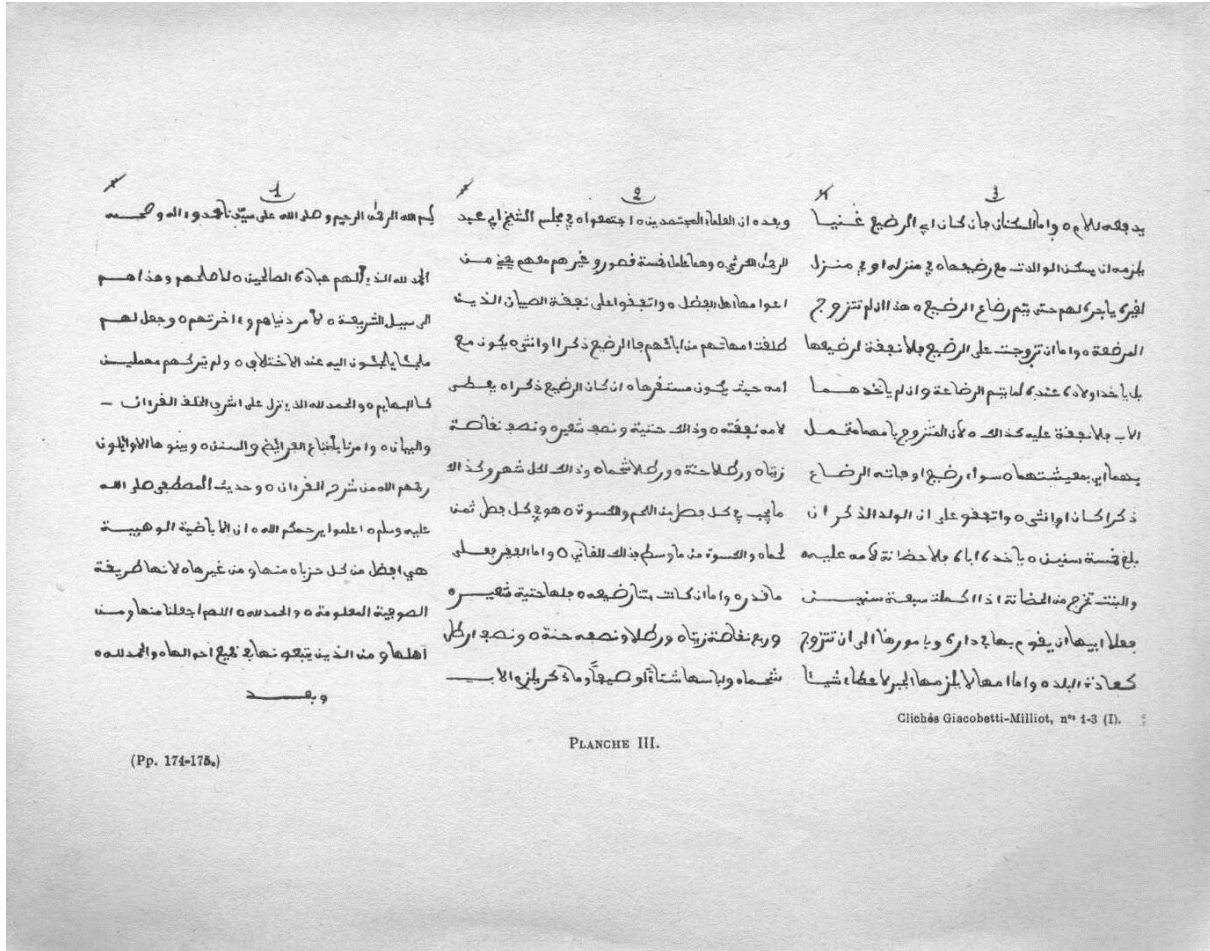 1
بسم الله الرحمٰن الرحيم وصلى الله على سيّدنا محمد وءاله وصحبه
الحمد لله الذي ألهم عباده الصالحين ه لاصلاحهم وهذاهم
الى سبيل الشريعة ه لأمر دنياهم وءاخرتهم ه وجعل لهم
ملجئا يلجئون اليه عند الاختلاف ه ولم يتركهم مهملين
كالبهايم ه والحمد لله الذي نزل على اشرف الخلف القرءان
والبيان ه وامرنا بأتباع الفرائض والسنن ه وبينوها الاوائلون
رحمهم الله من شرح القرءان ه وحديث المصطفى صلى الله
عليه وسلم ه اعلموا يرحمكم الله ه ان الاباضية الوهبية
هي افضل من كل حزب ه منها ومن غيرها ه لانها طريفة
الصوفية المعلومة ه والحمد لله ه اللهم اجعلنا منها ومن
أهلها ومن الذين يتبعونها في جميع احوالها ه والحمد لله ه
وبعد
2
وبعد ه ان العلماء المجتمدين ه اجتمعوا ه في مجلس الشيخ ابي عبد
الرحمٰن الكرثي ه وهما علماء خمسة قصور وغيرهم معهم يجيز من
اعوامها اهل الفضل ه واتفقوا على نفقة الصيان الذين
طلقت امهاتهم من ابائهم فا الرضيع ذكرا او انثى ه يكون مع
امه حيث يكون مستقرها ه ان كان الرضيع ذكرا ه يعطى
لامه نفقته ه وذالك حثية ونصف شعير ه ونصف نفاصة
زيتا ه ورطلا حنة ه ورطلا شحما ه وذالك لكل شهر وكذالك
ما يجب في كل فصل من اللحم والكسوة ه هو في كل فصل ثمن
لحما ه والكسوة من ماوسطم بذلك للغاني ه واما الفقر فعلى
ما قدر ه واما ان كانت بنتا رضيعه ه فلها حثية شعير ه
وربع نفاصة زيتا ه ورطلا ونصفه حنة ه ونصف ارطل
شحما ه ولباسها شتاءً او صيفاً وما ذكر يلزم الاب
3
يدفعه للام ه واما السكنان فان كان ابي الرضيع غنيا
يلزمه ان يسكن الوالدت مع رضيعها ه في منزله او في منزل
لغيره يأجره لهم حتى يتم رضاع الرضيع ه هذا ان لم تتزوج
المرضعة ه واما ان تزوجت على الرضيع فلا نفقة لرضيعها
بل ياخذ اولاده عنده كما يتم الرضاعة وان لم ياخذهما
الاب فلا نفقة عليه كذالك ه لأن المتزوج بامهما متحمل
بهما في معيشتهما ه سواء رضيع او فاته الرضاع
ذكرا كان او انثى ه واتفقو على ان الولد الذكر ان
بلغ خمسة سنين ه ياخذه اباه فلا حضانة لأمه عليه
والبنت تخرج من الحضانة اذا اكملت سبعة سنين
فعلا ابيها ان يقوم بها في داره وبامورها الى ان تتزوج
كعادة البلد ه واما امها لا يلزمها الجبر لاعطاء شيئا
Clichés Giacobetti-Milliot, nᵒˢ 1-3 (I).
PLANCHE III.
(Pp. 174-175.)